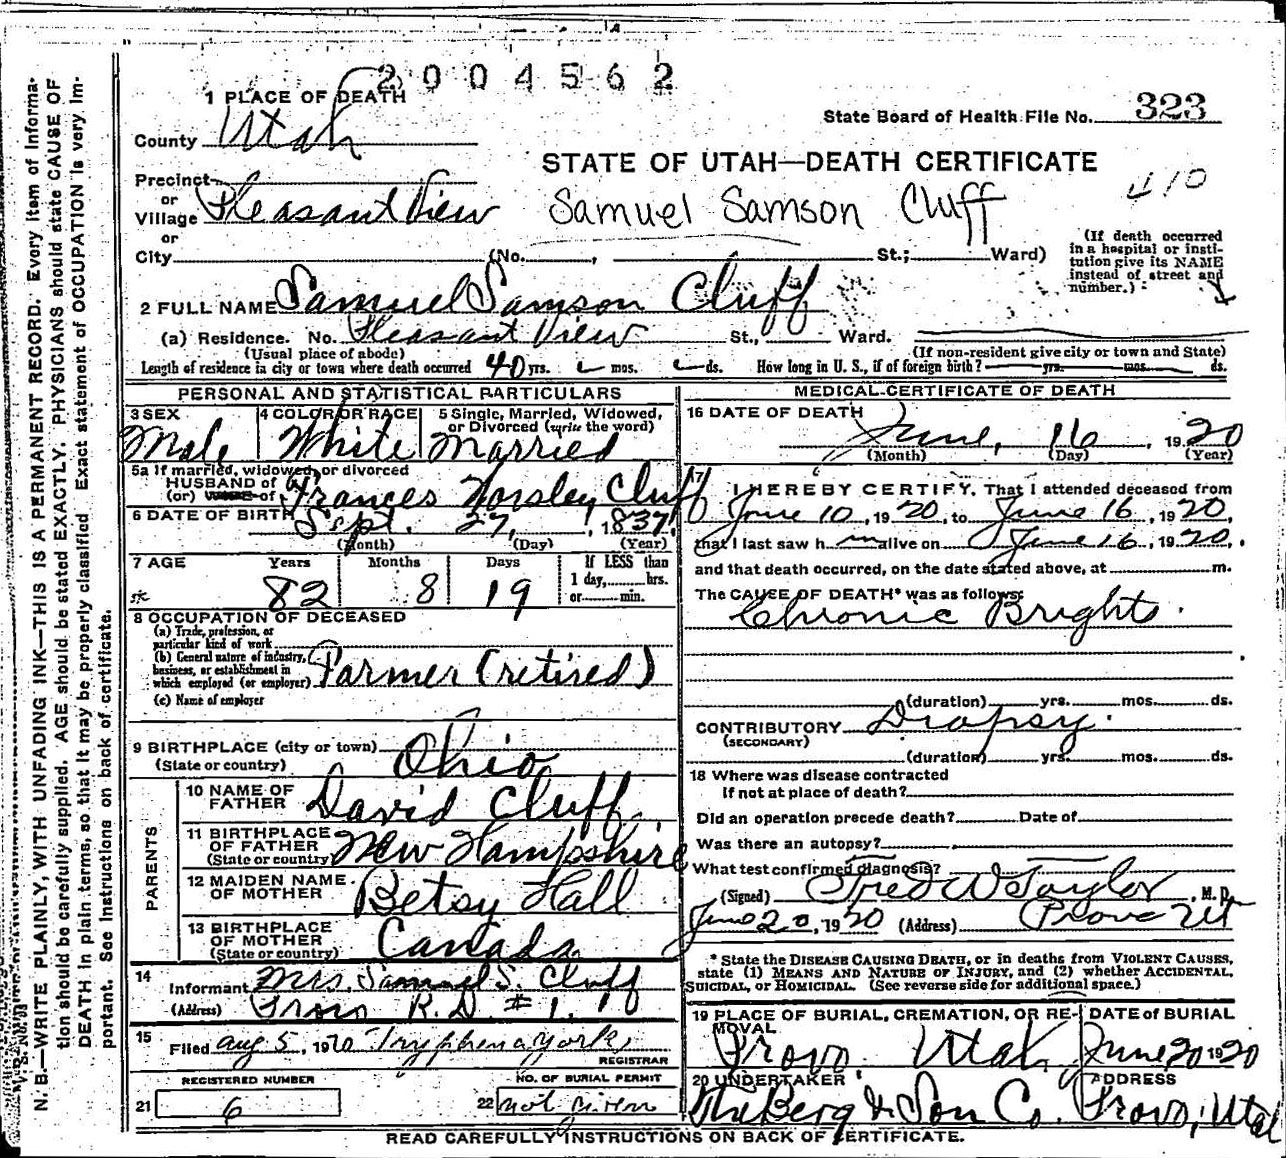 2004562
1 PLACE OF DEATH
State Board of Health File No. 323
County Utah
STATE OF UTAH—DEATH CERTIFICATE
410
Precinct
or
Village Pleasant View
Samuel Samson Cluff
or
City (No. , St.; Ward)
(If death occurred in a hospital or institution give its NAME instead of street and number.)
2 FULL NAME Samuel Samson Cluff
(a) Residence. No. Pleasant View St., Ward.
(Usual place of abode)
(If non-resident give city or town and State)
Length of residence in city or town where death occurred 40 yrs. mos. ds. How long in U. S., if of foreign birth? yrs. mos. ds.
PERSONAL AND STATISTICAL PARTICULARS
3 SEX
Male
4 COLOR OR RACE
White
5 Single, Married, Widowed, or Divorced (write the word)
Married
5a If married, widowed, or divorced
HUSBAND of
(or) WIFE of Frances Worsley Cluff
6 DATE OF BIRTH Sept. 27, 1837
(Month) (Day) (Year)
7 AGE Years Months Days If LESS than
1 day, hrs.
or min.
82 8 19
8 OCCUPATION OF DECEASED
(a) Trade, profession, or
particular kind of work
(b) General nature of industry,
business, or establishment in
which employed (or employer) Farmer (retired)
(c) Name of employer
9 BIRTHPLACE (city or town)
(State or country) Ohio
PARENTS
10 NAME OF
FATHER David Cluff
11 BIRTHPLACE
OF FATHER
(State or country) New Hampshire
12 MAIDEN NAME
OF MOTHER Betsy Hall
13 BIRTHPLACE
OF MOTHER
(State or country) Canada
14
Informant Mrs. Samuel S. Cluff
(Address) Provo R.D. #1.
15
Filed Aug 5, 1920 Tryphena York
REGISTRAR
REGISTERED NUMBER
NO. OF BURIAL PERMIT
21 6
22 not given
MEDICAL CERTIFICATE OF DEATH
16 DATE OF DEATH
June, 16, 1920
(Month) (Day) (Year)
17 I HEREBY CERTIFY, That I attended deceased from
June 10, 1920, to June 16, 1920,
that I last saw h m alive on June 16, 1920,
and that death occurred, on the date stated above, at m.
The CAUSE OF DEATH* was as follows:
Chronic Brights.
(duration) yrs. mos. ds.
CONTRIBUTORY Dropsy.
(SECONDARY)
(duration) yrs. mos. ds.
18 Where was disease contracted
if not at place of death?
Did an operation precede death? Date of
Was there an autopsy?
What test confirmed diagnosis?
(Signed) Fred W Taylor, M. D.
June 20, 1920 (Address) Provo Ut
* State the DISEASE CAUSING DEATH, or in deaths from VIOLENT CAUSES,
state (1) MEANS AND NATURE OF INJURY, and (2) whether ACCIDENTAL,
SUICIDAL, or HOMICIDAL. (See reverse side for additional space.)
19 PLACE OF BURIAL, CREMATION, OR REMOVAL
Provo Utah
DATE of BURIAL
June 20 1920
20 UNDERTAKER
The Berg & Son Co.
ADDRESS
Provo, Utah
READ CAREFULLY INSTRUCTIONS ON BACK OF CERTIFICATE.
N. B.—WRITE PLAINLY, WITH UNFADING INK—THIS IS A PERMANENT RECORD. Every item of Informa-
tion should be carefully supplied. AGE should be stated EXACTLY. PHYSICIANS should state CAUSE OF
DEATH in plain terms, so that it may be properly classified. Exact statement of OCCUPATION is very im-
portant. See instructions on back of certificate.